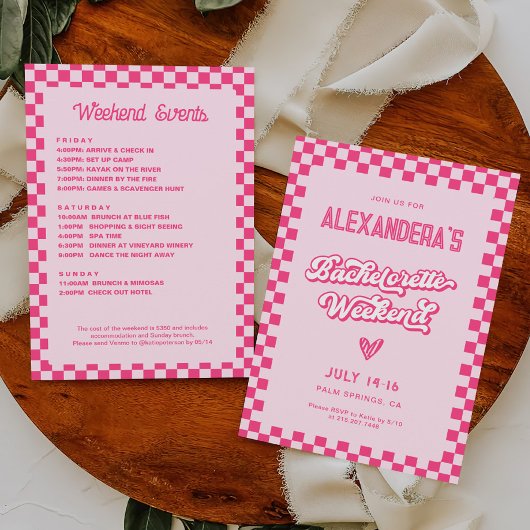 Weekend Events
FRIDAY
4:00PM: ARRIVE & CHECK IN
4:30PM: SET UP CAMP
5:50PM: KAYAK ON THE RIVER
7:00PM: DINNER BY THE FIRE
8:00PM: GAMES & SCAVENGER HUNT
SATURDAY
10:00AM BRUNCH AT BLUE FISH
1:00PM SHOPPING & SIGHT SEEING
4:00PM SPA TIME
6:30PM DINNER AT VINEYARD WINERY
9:00PM DANCE THE NIGHT AWAY
SUNDAY
11:00AM BRUNCH & MIMOSAS
2:00PM CHECK OUT HOTEL
The cost of the weekend is $350 and includes
accommodation and Sunday brunch.
Please send Venmo to @katiepeterson by 05/14
JOIN US FOR
ALEXANDERA'S
Bachelorette
Weekend
JULY 14-16
PALM SPRINGS, CA
Please RSVP to Katie by 5/10
at 216.207.7446